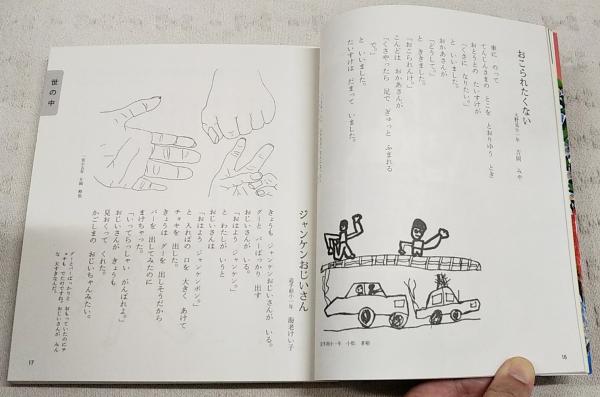 おこられたくない
大野島小一年 古賀 みや
車に のって
てんじんさまの とこを とおりゆう とき
おとうとの たいすけが
「くさに なりたい。」
と いいました。
おかあさんが
「どうして。」
と ききました。
「おこられんけ。」
こんどは おかあさんが
「くさやったら 足で ぎゅっと ふまれる
で。」
と いいました。
たいすけは だまって いました。
16
世の中
ジャンケンおじいさん
一年 海老 けい子
きょうも ジャンケンおじいさんが いる。
グーと パーばっかり 出す
おじいさんが いる。
「おはよう ジャンケン。」
と わたしが いうと
おじいさんは
「おはよう ジャンケンポン。」
と 入ればの 口を 大きく あけて
チョキを 出した。
きょうは グーを 出しそうだから
パーを 出してみたのに
まけちゃった。
「いってらっしゃい がんばれよ。」
おじいさんが きょうも
見おくって くれた。
かごしまの おじいちゃんみたい。
17